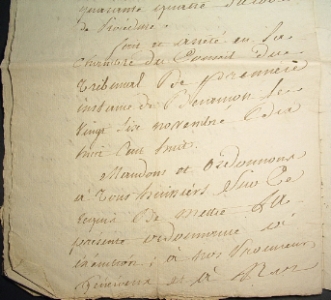 quarante quatre
de Procédure.
fait et arrêté en la
chambre du Conseil du
Tribunal De première
instance de
Vingt six novembre
huit Cent huit.
Mandons et ordonnons
à Tous huissiers Sur Ce
requis De mettre La
presente ordonnance en
exécution; à nos Procureurs
Généraux et à Nos